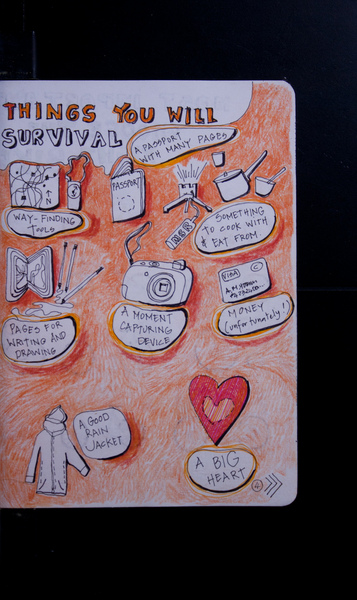 THINGS YOU WILL
SURVIVAL
A PASSPORT
WITH MANY PAGES
N
PASSPORT
WAY-FINDING
TOOLS
SOMETHING
TO COOK WITH
& EAT FROM
VISA
PAGES FOR
WRITING AND
DRAWING
A MOMENT
CAPTURING
DEVICE
MONEY
(unfortunately!)
A GOOD
RAIN
JACKET
A BIG
HEART
4